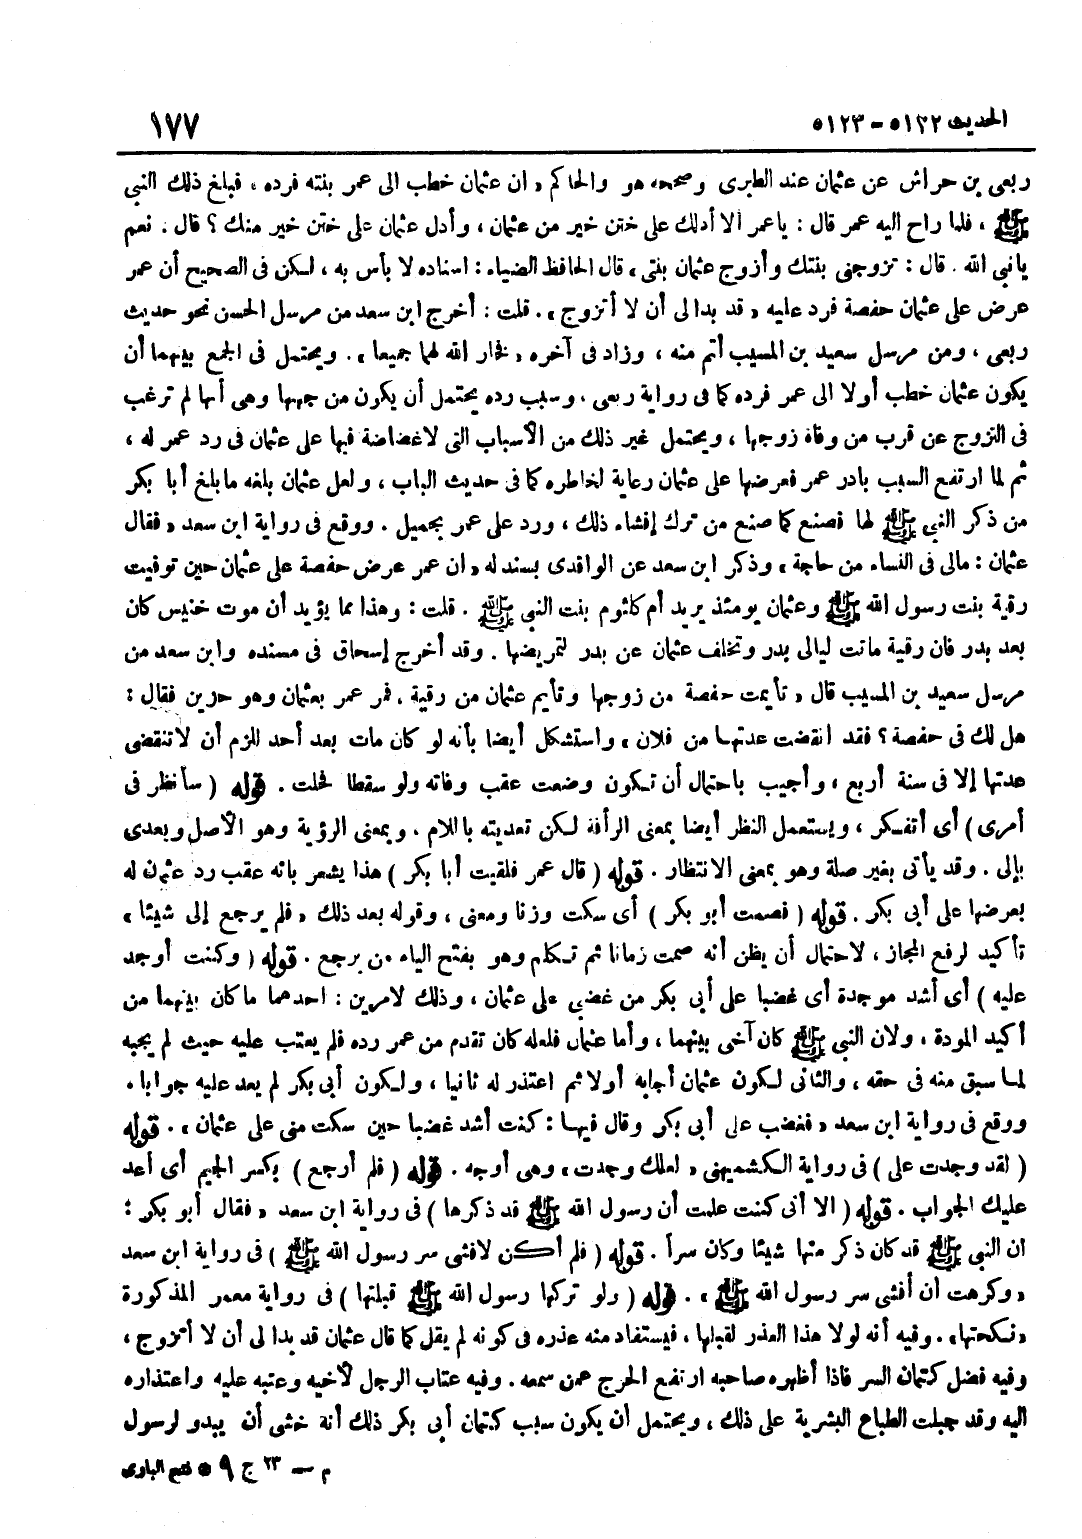 الحديث ٥١٢٢ – ٥١٢٣
١٧٧
ربعى بن حراش عن عثمان عند الطبرى وصححه هو والحاكم « ان عثمان خطب الى عمر بنته فرده ، فبلغ ذلك النبى
ﷺ ، فلما راح اليه عمر قال : ياعمر ألا أدلك على ختن خير من عثمان ، وأدل عثمان على ختن خير منك ؟ قال : نعم
يانبى الله . قال : تزوجنى بنتك وأزوج عثمان بنتى » قال الحافظ الضياء : اسناده لا بأس به ، لكن فى الصحيح أن عمر
عرض على عثمان حفصة فرد عليه « قد بدا لى أن لا أتزوج » . قلت : أخرج ابن سعد من مرسل الحسن نحو حديث
ربعى ، ومن مرسل سعيد بن المسيب أتم منه ، وزاد فى آخره « فخار الله لهما جميعا » . ويحتمل فى الجمع بينهما أن
يكون عثمان خطب أولا الى عمر فرده كما فى رواية ربعى ، وسبب رده يحتمل أن يكون من جهتها وهى أنها لم ترغب
فى التزوج عن قرب من وفاة زوجها ، ويحتمل غير ذلك من الأسباب التى لا غضاضة فيها على عثمان فى رد عمر له ،
ثم لما ارتفع السبب بادر عمر فعرضها على عثمان رعاية لخاطره كما فى حديث الباب ، ولعل عثمان بلغه ما بلغ أبا بكر
من ذكر النبى ﷺ لها فصنع كما صنع من ترك إفشاء ذلك ، ورد على عمر بجميل . ووقع فى رواية ابن سعد « فقال
عثمان : مالى فى النساء من حاجة » وذكر ابن سعد عن الواقدى بسند له « ان عمر عرض حفصة على عثمان حين توفيت
رقية بنت رسول الله ﷺ وعثمان يومئذ يريد أم كلثوم بنت النبى ﷺ . قلت : وهذا مما يؤيد أن موت خنيس كان
بعد بدر فان رقية ماتت ليالى بدر وتخلف عثمان عن بدر لتمريضها . وقد أخرج إسحاق فى مسنده وابن سعد من
مرسل سعيد بن المسيب قال « تأيمت حفصة من زوجها وتأيم عثمان من رقية ، فمر عمر بعثمان وهو حزين فقال :
هل لك فى حفصة ؟ فقد انقضت عدتها من فلان » واستشكل أيضا بأنه لو كان مات بعد أحد للزم أن لا تنقضى
عدتها إلا فى سنة أربع ، وأجيب باحتمال أن تكون وضعت عقب وفاته ولو سقطا فحلت . قوله ( سأنظر فى
أمرى ) أى أتفكر ، ويستعمل النظر أيضا بمعنى الرأفة لكن تعديته باللام . وبمعنى الرؤية وهو الأصل ويعدى
بإلى . وقد يأتى بغير صلة وهو بمعنى الانتظار . قوله ( قال عمر فلقيت أبا بكر ) هذا يشعر بانه عقب رد عثمان له
بعرضها على أبى بكر . قوله ( فصمت أبو بكر ) أى سكت وزنا ومعنى ، وقوله بعد ذلك « فلم يرجع إلى شيئا »
تأكيد لرفع المجاز ، لاحتمال أن يظن أنه صمت زمانا ثم تكلم وهو بفتح الياء من يرجع . قوله ( وكنت أوجد
عليه ) أى أشد موجدة أى غضبا على أبى بكر من غضبى على عثمان ، وذلك لامرين : احدهما ما كان بينهما من
أكيد المودة ، ولان النبى ﷺ كان آخى بينهما ، وأما عثمان فلعله كان تقدم من عمر رده فلم يعتب عليه حيث لم يجبه
لما سبق منه فى حقه ، والثانى لكون عثمان أجابه أولا ثم اعتذر له ثانيا ، ولكون أبى بكر لم يعد عليه جوابا .
ووقع فى رواية ابن سعد « فغضب على أبى بكر وقال فيها : كنت أشد غضبا حين سكت منى على عثمان » . قوله
( لقد وجدت على ) فى رواية الكشميهنى « لعلك وجدت » وهى أوجه . قوله ( فلم أرجع ) بكسر الجيم أى أعد
عليك الجواب . قوله ( الا أنى كنت علمت أن رسول الله ﷺ قد ذكرها ) فى رواية ابن سعد « فقال أبو بكر :
ان النبى ﷺ قد كان ذكر منها شيئا وكان سرا . قوله ( فلم أكن لافشى سر رسول الله ﷺ ) فى رواية ابن سعد
« وكرهت أن أفشى سر رسول الله ﷺ » . قوله ( ولو تركها رسول الله ﷺ قبلتها ) فى رواية معمر المذكورة
« نكحتها » . وفيه أنه لولا هذا العذر لقبلها ، فيستفاد منه عذره فى كونه لم يقل كما قال عثمان قد بدا لى أن لا أتزوج ،
وفيه فضل كتمان السر فاذا أظهره صاحبه ارتفع الحرج عمن سمعه . وفيه عتاب الرجل لأخيه وعتبه عليه واعتذاره
اليه وقد جبلت الطباع البشرية على ذلك ، ويحتمل أن يكون سبب كتمان أبى بكر ذلك أنه خشى أن يبدو لرسول
م – ٢٣ ج ٩ * فتح البارى